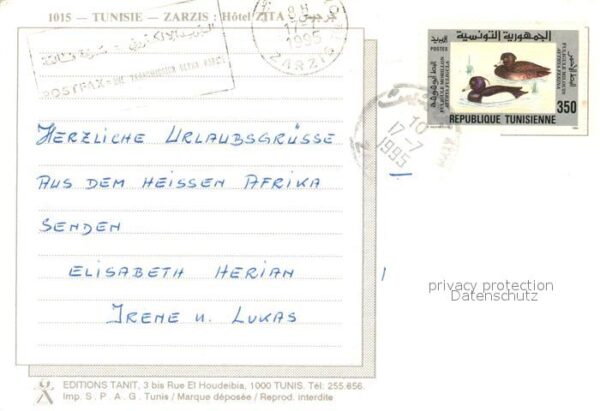 1015 - TUNISIE - ZARZIS : Hôtel ZITA جرجيس
9H
17-7
1995
ZARZIS
POSTFAX =
الجمهورية التونسية
البريد
POSTES
FULIGULE MORILLON
350
REPUBLIQUE TUNISIENNE
10
17-7
1995
HERZLICHE URLAUBSGRÜSSE
AUS DEM HEISSEN AFRIKA
SENDEN
ELISABETH HERIAN
IRENE U. LUKAS
privacy protection
Datenschutz
EDITIONS TANIT, 3 bis Rue El Houdeibia, 1000 TUNIS. Tél: 255.656.
Imp. S . P . A . G . Tunis / Marque déposée / Reprod. interdite